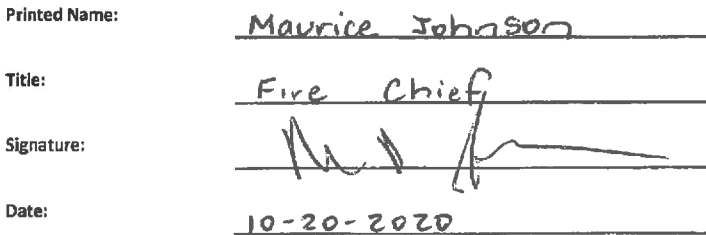 Printed Name: Maurice Johnson
Title: Fire Chief
Signature:
Date: 10-20-2020